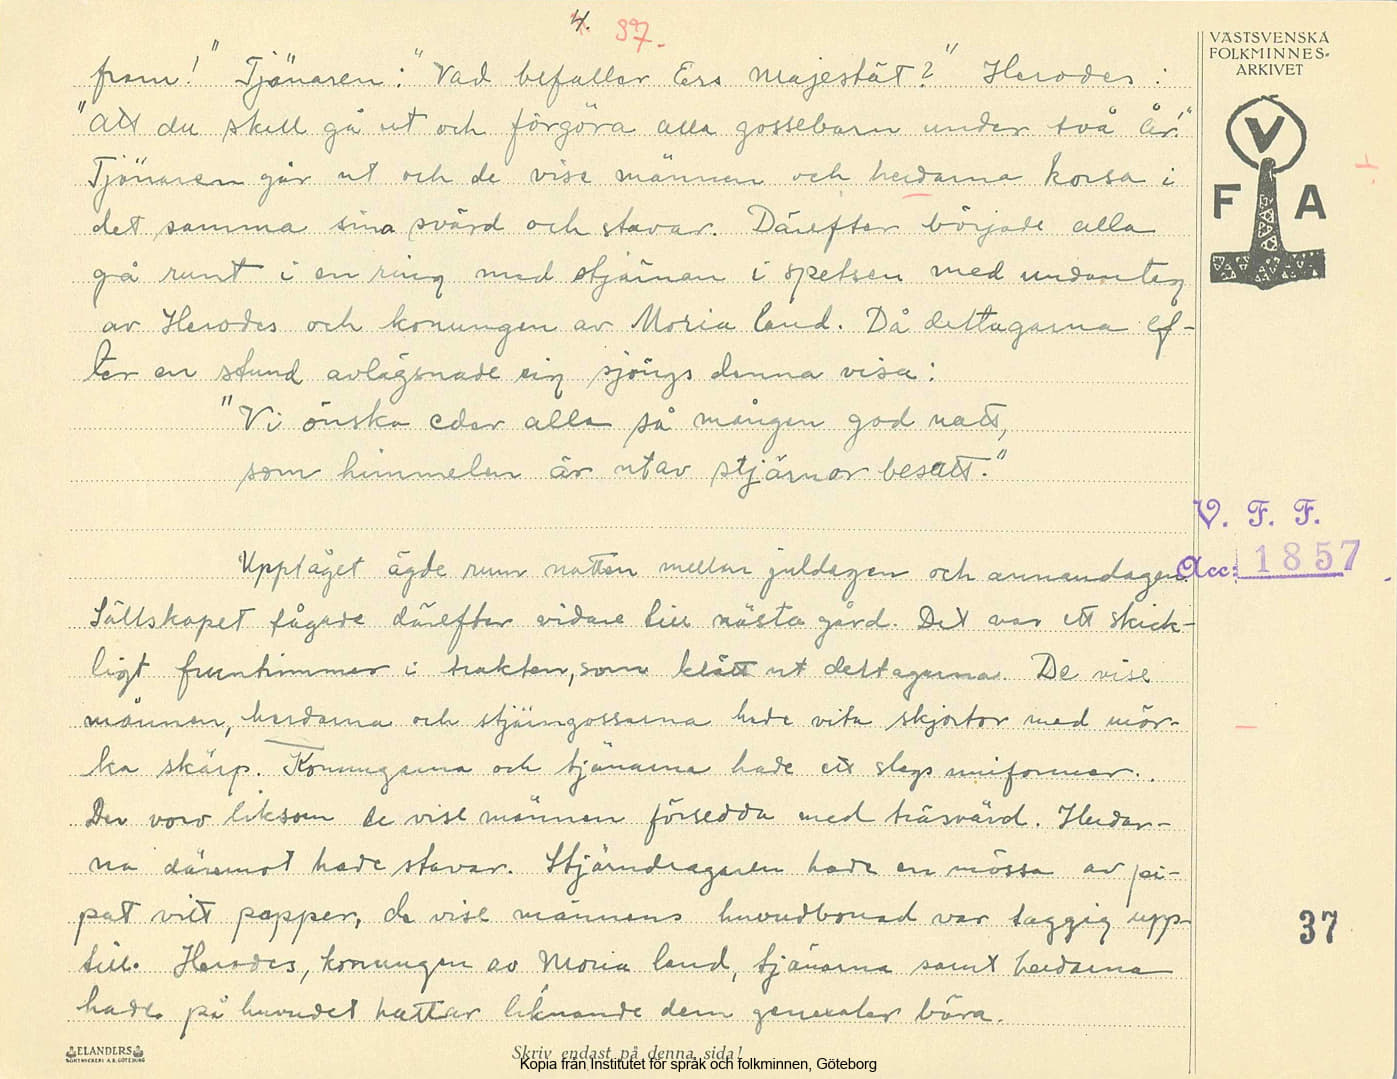 4. 37.
VÄSTSVENSKA
FOLKMINNES-
ARKIVET
V
F A
fram!" Tjänaren: "Vad befaller Ers Majestät?" Herodes:
"Att du skall gå ut och förgöra alla gossebarn under två år!"
Tjänaren går ut och de vise männen och herdarna korsa i
det samma sina svärd och stavar. Därefter började alla
gå runt i en ring med stjärnan i spetsen med undantag
av Herodes och konungen av Moria land. Då deltagarna ef-
ter en stund avlägsnade sig sjöngs denna visa:
"Vi önska eder alla så mången god natt,
som himmelen är utav stjärnor besatt."
V. F. F.
Acc: 1857
Upptåget ägde rum natten mellan juldagen och annandagen.
Sällskapet tågade därefter vidare till nästa gård. Det var ett skick-
ligt fruntimmer i trakten, som klätt ut deltagarna. De vise
männen, herdarna och stjärngossarna hade vita skjortor med mör-
ka skärp. Konungarna och tjänarna hade ett slags uniformer.
De voro liksom de vise männen försedda med träsvärd. Herdar-
na däremot hade stavar. Stjärndragaren hade en mössa av pi-
pat vitt papper, de vise männens huvudbonad var taggig upp-
till. Herodes, konungen av Moria land, tjänarna samt herdarna
hade på huvudet hattar liknande dem generaler bära.
37
ELANDERS
BOKTRYCKERI A.B. GÖTEBORG
Skriv endast på denna sida!
Kopia från Institutet för språk och folkminnen, Göteborg